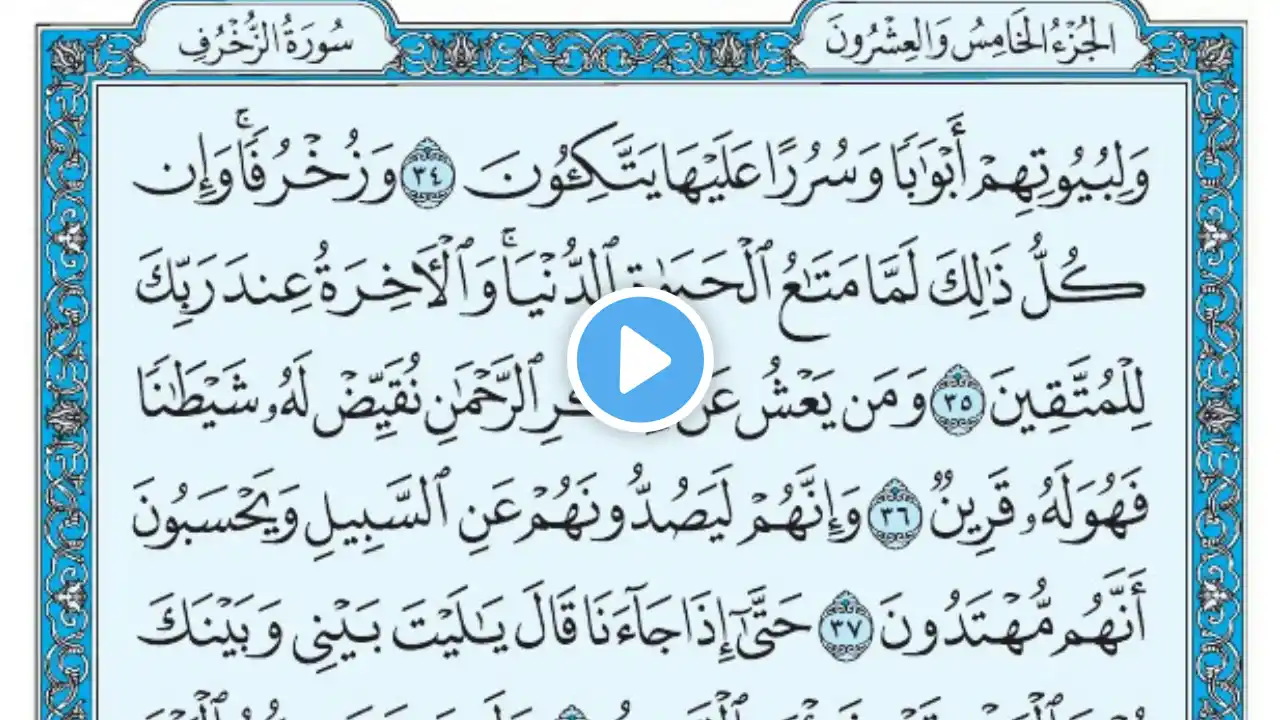 الجُزْءُ الخَامِسُ وَالعِشْرُونَ
سُورَةُ الزُّخْرُفِ
وَلِبُيُوتِهِمْ أَبْوَٰبًا وَسُرُرًا عَلَيْهَا يَتَّكِـُٔونَ ٣٤ وَزُخْرُفًاۚ وَإِن
كُلُّ ذَٰلِكَ لَمَّا مَتَٰعُ ٱلدُّنْيَاۚ وَٱلْأَخِرَةُ عِندَ رَبِّكَ
لِلْمُتَّقِينَ ٣٥ وَمَن يَعْشُ عَن ٱلرَّحْمَٰنِ نُقَيِّضْ لَهُۥ شَيْطَٰنًا
فَهُوَ لَهُۥ قَرِينٌ ٣٦ وَإِنَّهُمْ لَيَصُدُّونَهُمْ عَنِ ٱلسَّبِيلِ وَيَحْسَبُونَ
أَنَّهُم مُّهْتَدُونَ ٣٧ حَتَّىٰٓ إِذَا جَآءَنَا قَالَ يَٰلَيْتَ بَيْنِى وَبَيْنَكَ